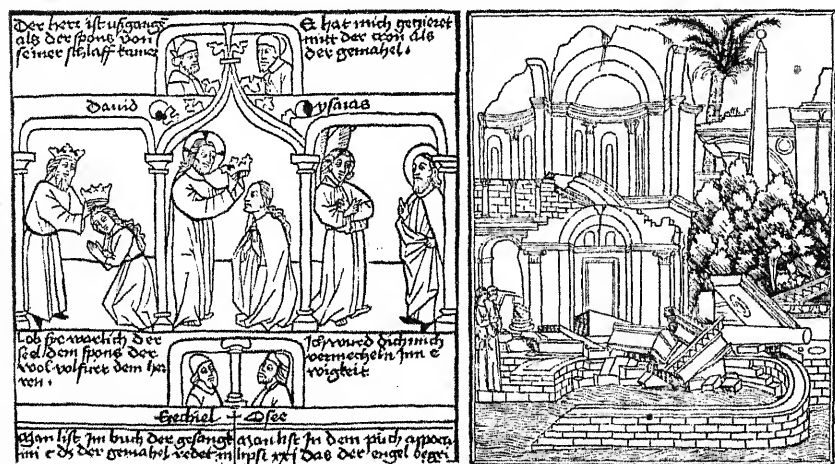 Der herr ist ußgangē
als der spons von
seiner schlaff kamer
Er hat mich gezieret
mitt der cron als
der gemahel.
David
ysaias
Lob sye warlich der
sel dem spons der
wol volfüret dem her
ren.
Ich wurd dich mich
vermecheln inn e
wigkeit
Ezechiel
Osee
Man list Im buch der gesangk
im c dz der gemahel redet in
Man list In dem půch appoca
lipsi xxj das der engel